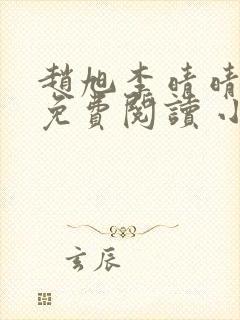 趙旭李晴晴
免費閱讀小
玄辰